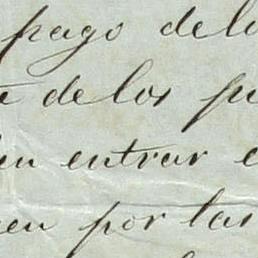 pago delo
de los pu
en entrar e
en por las